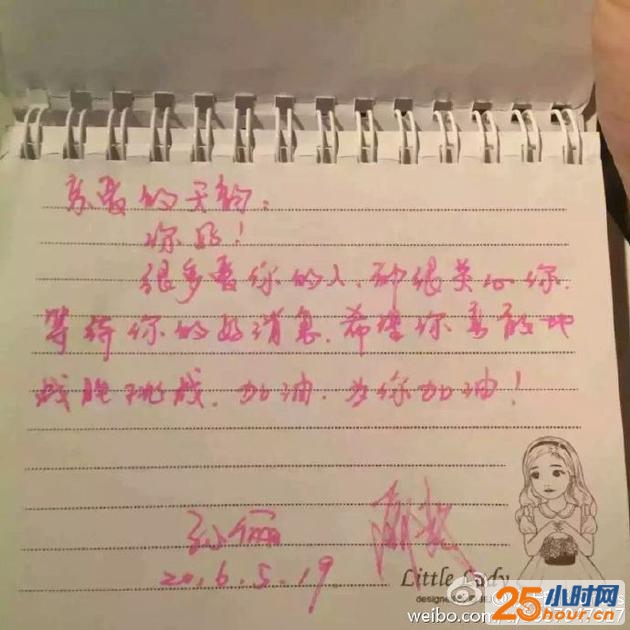 亲爱的天韵：
你好！
很多爱你的人，都很关心你，
等待你的好消息，希望你勇敢地
战胜挑战，加油，为你加油！
孙俪 邓超
2016.5.19.
Little Lady
designed
weibo.com/
25小时网
25hour.cn